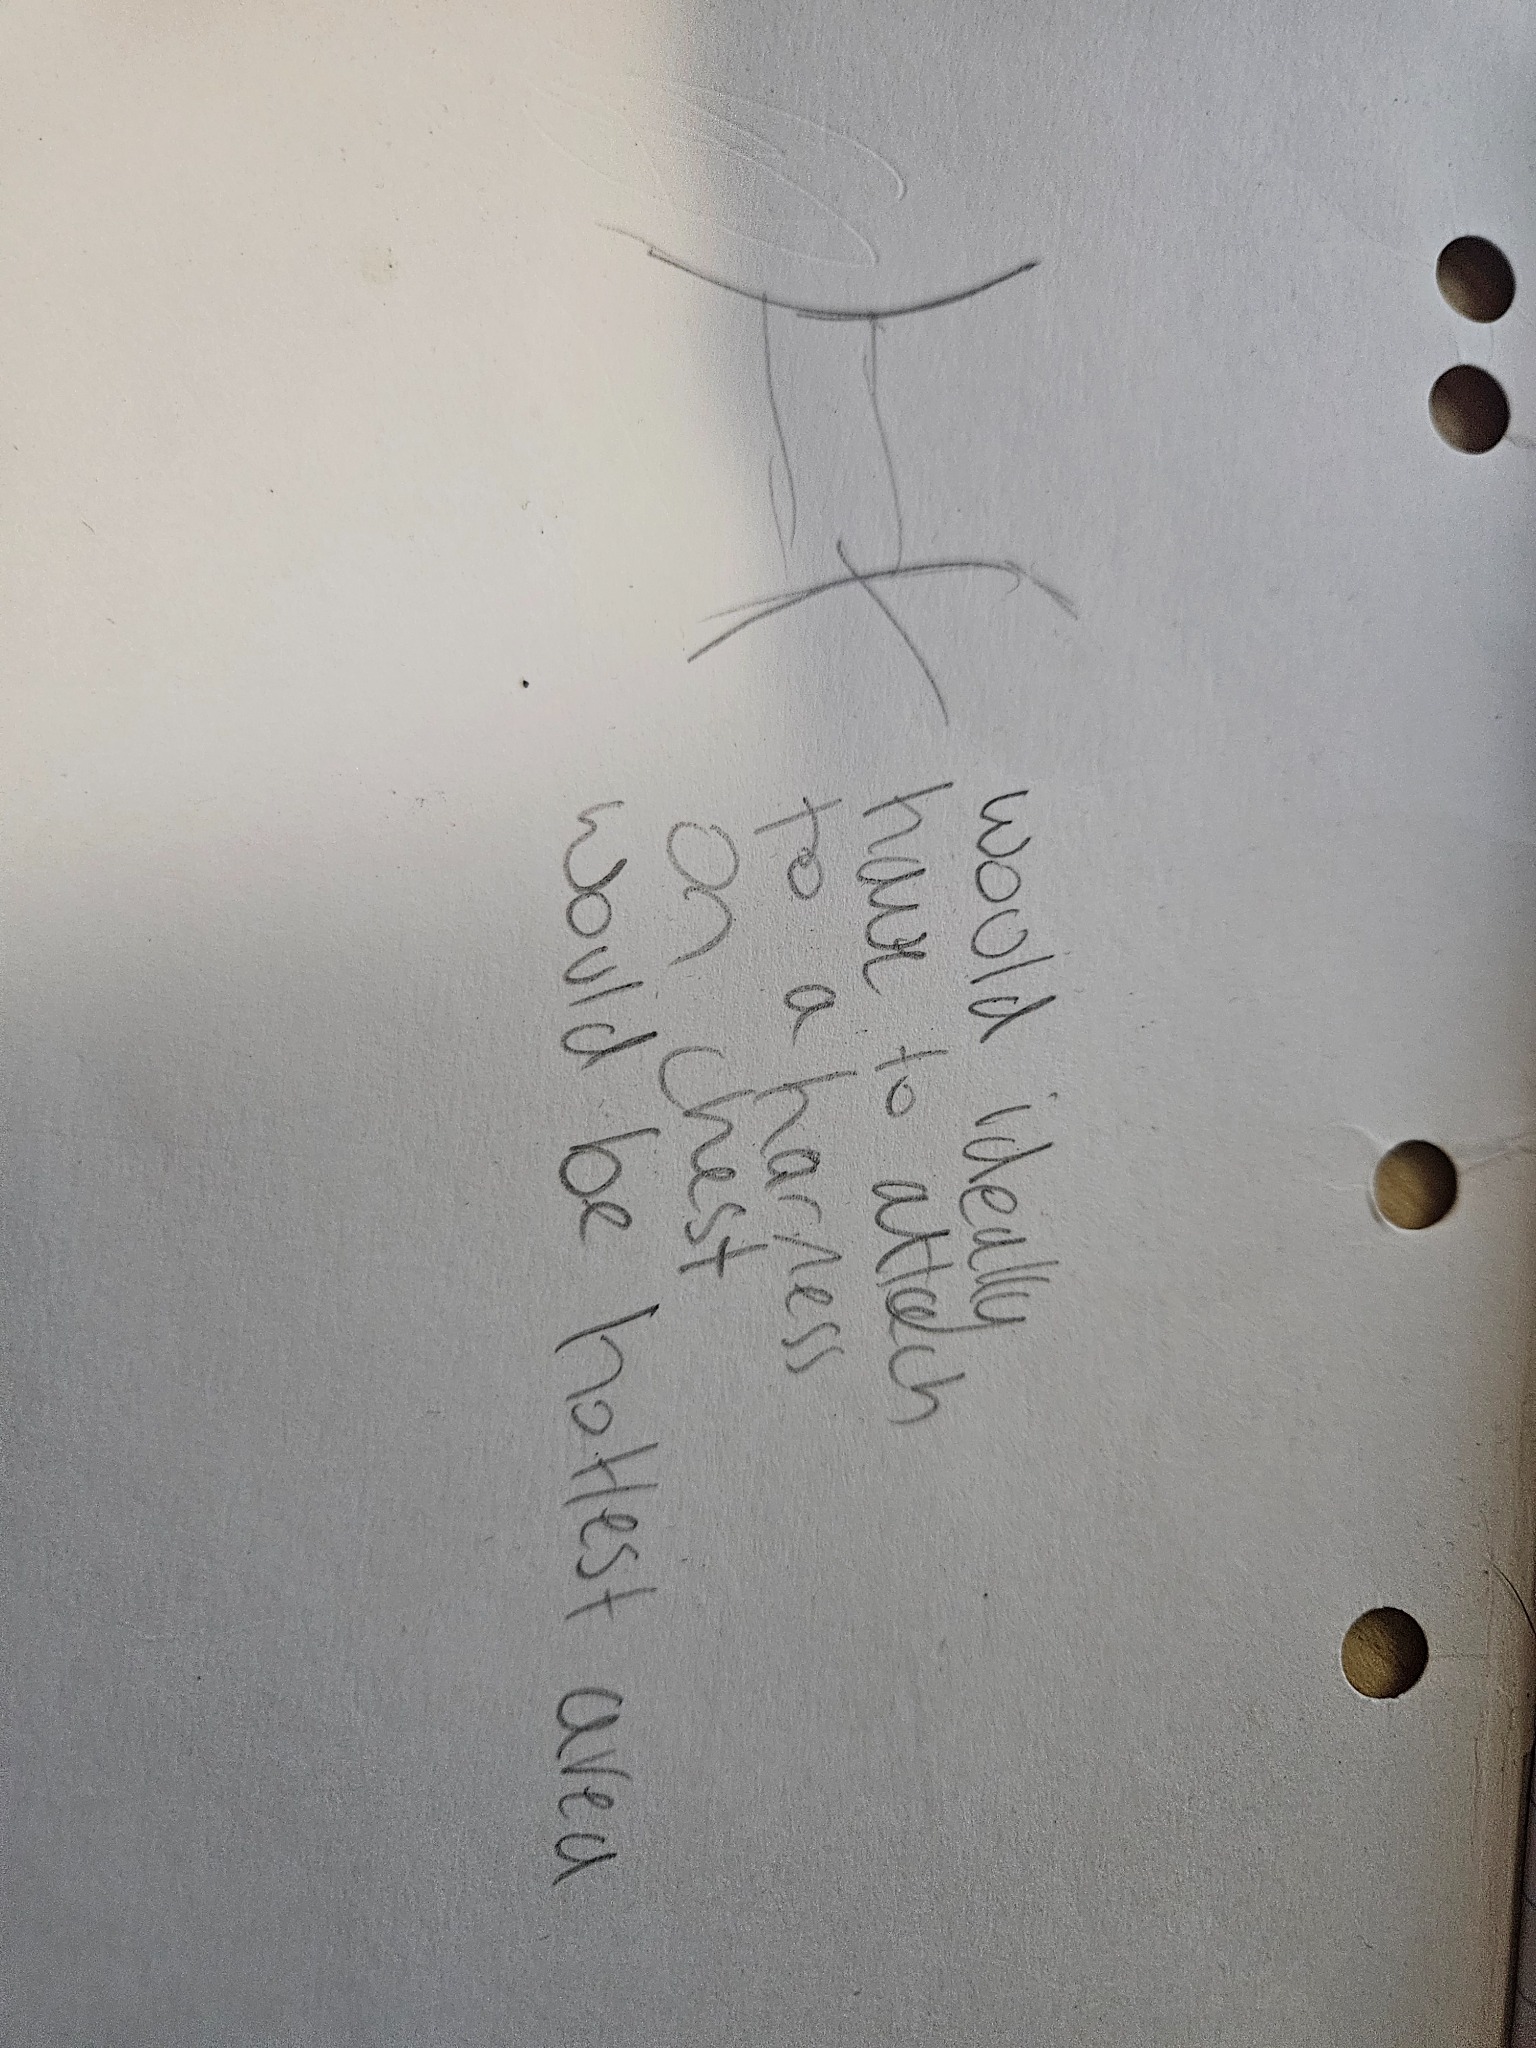 would ideally
have to attach
to a harness
on chest
would be hottest area